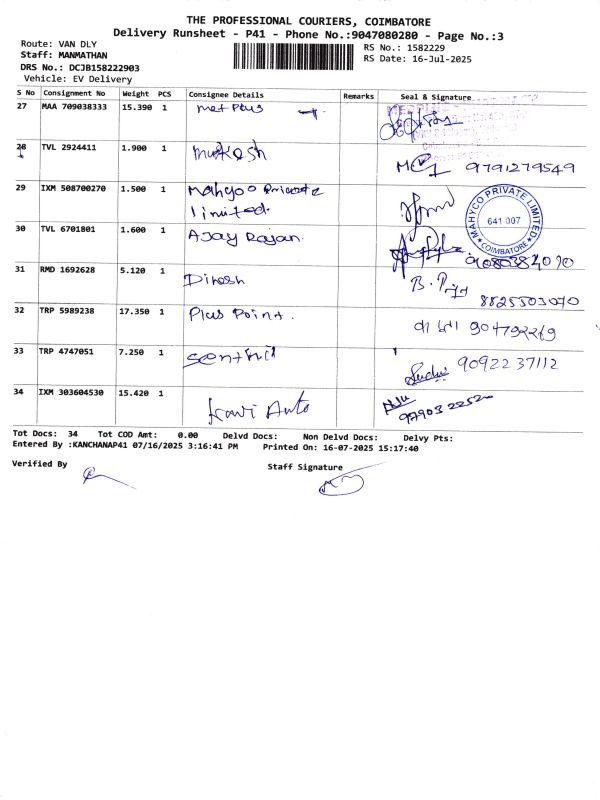 THE PROFESSIONAL COURIERS, COIMBATORE
Delivery Runsheet - P41 - Phone No.:9047080280 - Page No.:3
Route: VAN DLY
Staff: MANMATHAN
DRS No.: DCJB158222903
Vehicle: EV Delivery
RS No.: 1582229
RS Date: 16-Jul-2025
S No Consignment No Weight PCS Consignee Details Remarks Seal & Signature
27 MAA 709038333 15.390 1 met Plus
28 TVL 2924411 1.900 1 Mukesh 9791279549
29 IXM 508700270 1.500 1 Mahyco Private
limited.
MAHYCO PRIVATE LIMITED
641 007
COIMBATORE
30 TVL 6701801 1.600 1 Ajay Rajan
31 RMD 1692628 5.120 1 Dinesh 8825503070
32 TRP 5989238 17.350 1 Plus Point.
33 TRP 4747051 7.250 1 Senthil 9092237112
34 IXM 303604530 15.420 1 Auto
Tot Docs: 34 Tot COD Amt: 0.00 Delvd Docs: Non Delvd Docs: Delvy Pts:
Entered By :KANCHANAP41 07/16/2025 3:16:41 PM Printed On: 16-07-2025 15:17:40
Verified By Staff Signature